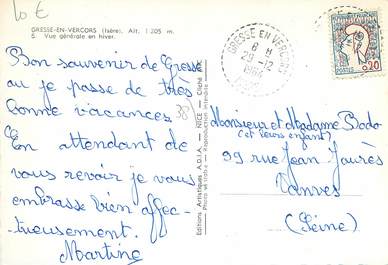 10 €
GRESSE-EN-VERCORS (Isère). Alt. 1.205 m.
5. Vue générale en hiver.
Bon souvenir de Gresse
ou je passe de très
bonne vacances.
En attendant de
vous revoir je vous
embrasse bien affec-
tueusement.
Martine
38
Editions Artistiques A.D.I.A. - NICE - Cliché
Photo véritable - Reproduction interdite
GRESSE EN VERCORS
8 H
29-12
1964
ISERE
0,20
POSTES
Monsieur et Madame Bodo
(et leurs enfants)
99 rue Jean Jaurès
Vanves
(Seine)